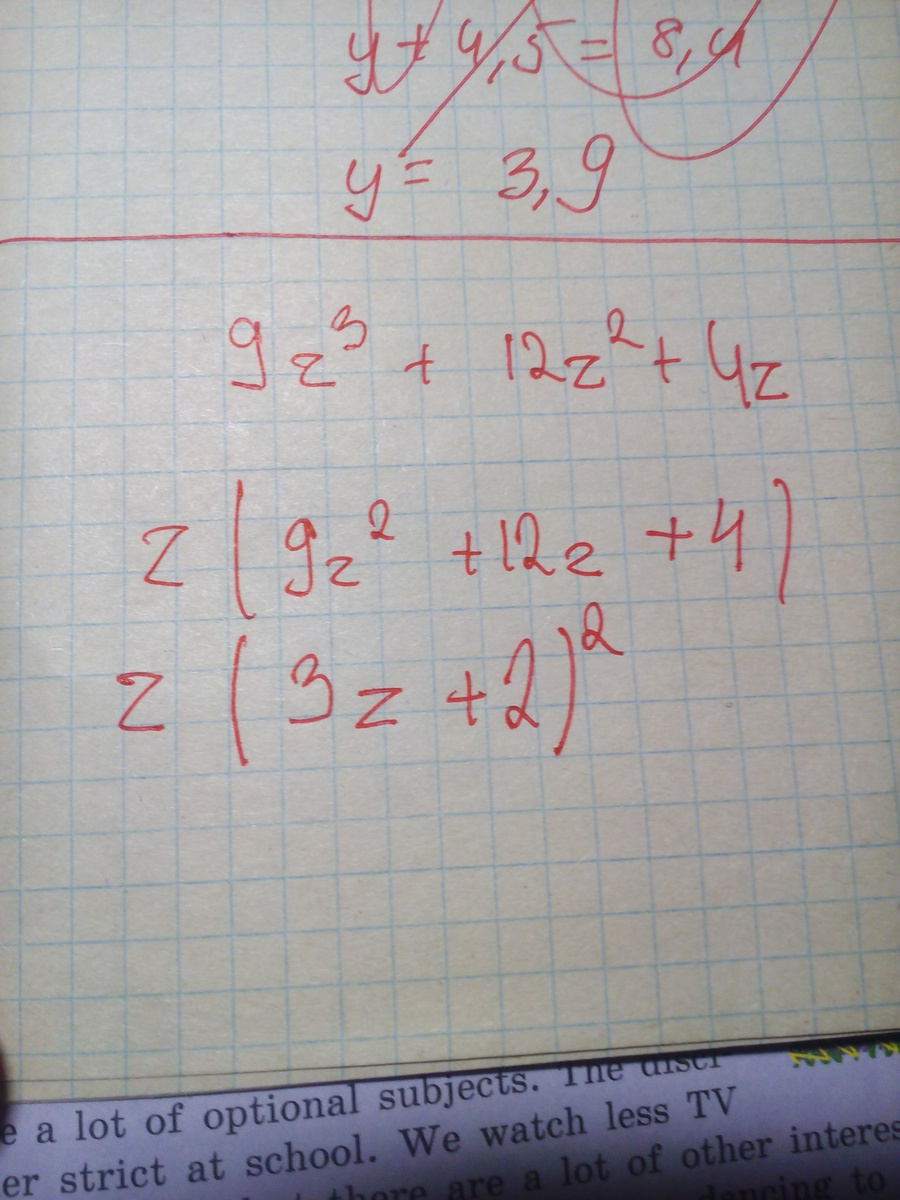 y + 4,5 = 8,4
y = 3,9
9z³ + 12z² + 4z
z (9z² + 12z + 4)
z (3z + 2)²
e a lot of optional subjects. The
er strict at school. We watch less TV
there are a lot of other interes
to